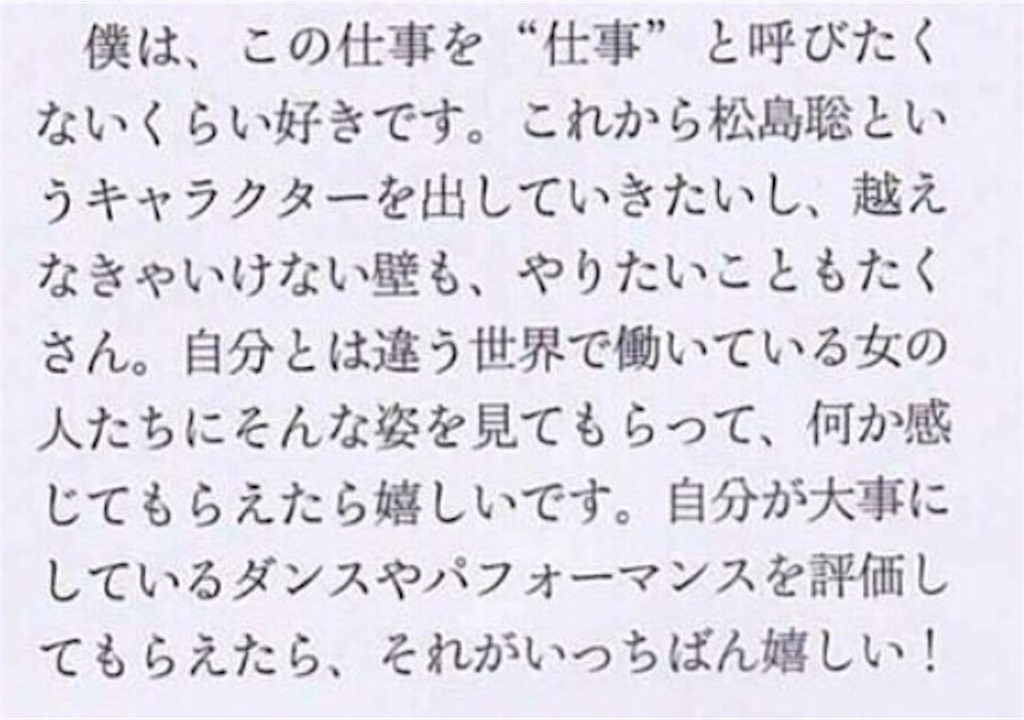 僕は、この仕事を“仕事”と呼びたく
ないくらい好きです。これから松島聡とい
うキャラクターを出していきたいし、越え
なきゃいけない壁も、やりたいこともたく
さん。自分とは違う世界で働いている女の
人たちにそんな姿を見てもらって、何か感
じてもらえたら嬉しいです。自分が大事に
しているダンスやパフォーマンスを評価し
てもらえたら、それがいっちばん嬉しい！